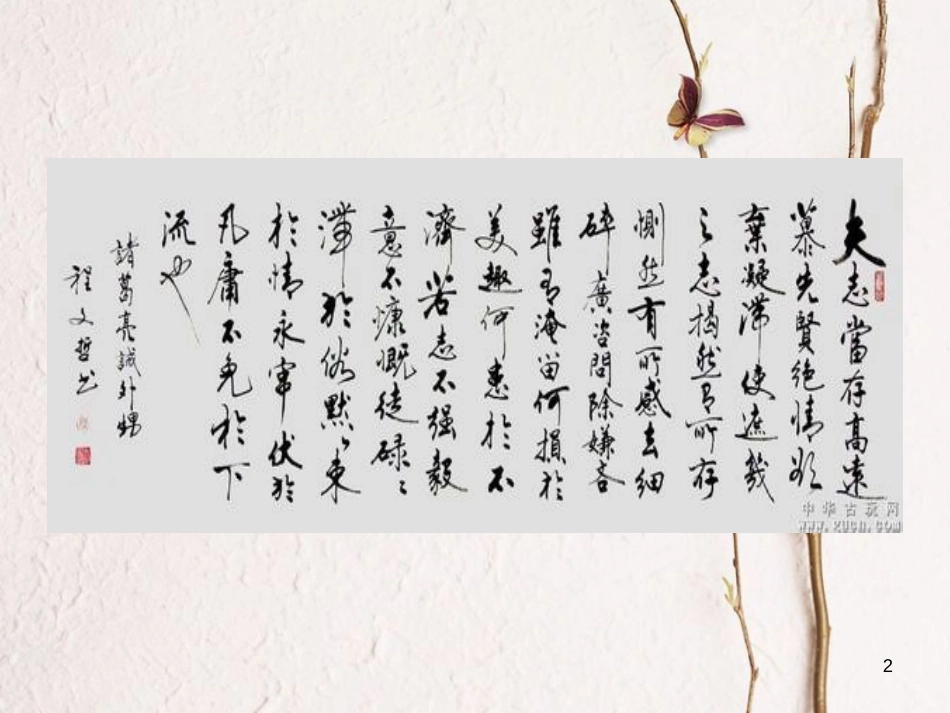 夫志當存高遠
慕先賢絕情欲
棄凝滯使遮幾
之志揭然有所存
惻然有所感去細
碎廣咨問除嫌吝
雖有淹留何損於
美趣何患於不
濟若志不强毅
意不慷慨徒碌々
滯於俗默々束
於情永窜伏於
凡庸不免於下
流也
諸葛亮誡外甥
程文哲书
中华古玩网
www.gucn.com
2